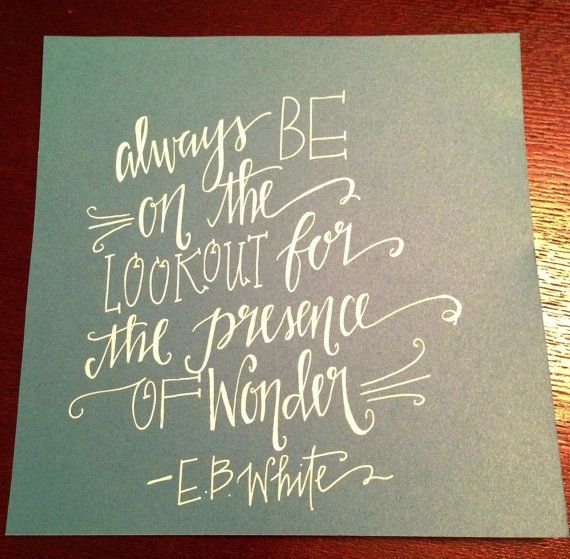 always BE
on the
LOOKOUT for
the presence
OF Wonder
- E.B. White